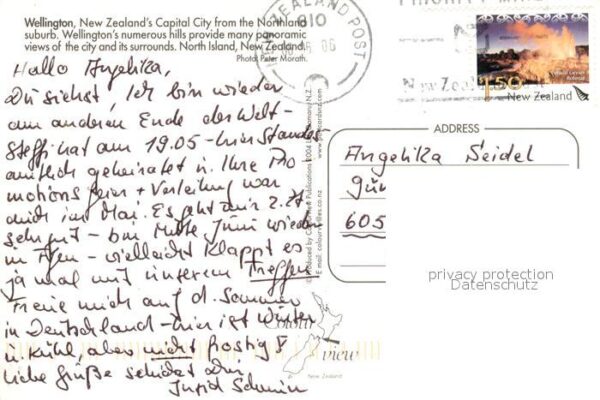 Wellington, New Zealand's Capital City from the Northland
suburb. Wellington's numerous hills provide many panoramic
views of the city and its surrounds. North Island, New Zealand.
Photo: Peter Morath.
NEW ZEALAND POST
010
1.50
New Zealand
New Zealand
Hallo Angelika,
Du siehst, ich bin wieder
am anderen Ende der Welt-
Steffi hat am 19.05 - hier Standes
amtlich geheiratet u. Ihre Pro
motions feier + Verleihung war
auch im Mai. Es geht mir z. Zt.
sehr gut - bin Mitte Juni wieder
in - vielleicht klappt es
ja mal mit unserem Treffen
freue mich auf d. Sommer
in Deutschland - hier ist Winter
u. kühl, aber nicht frostig!
liebe Grüße sendet Dir
Ingrid
ADDRESS
Angelika Seidel
605
privacy protection
Datenschutz
Colour
view
New Zealand